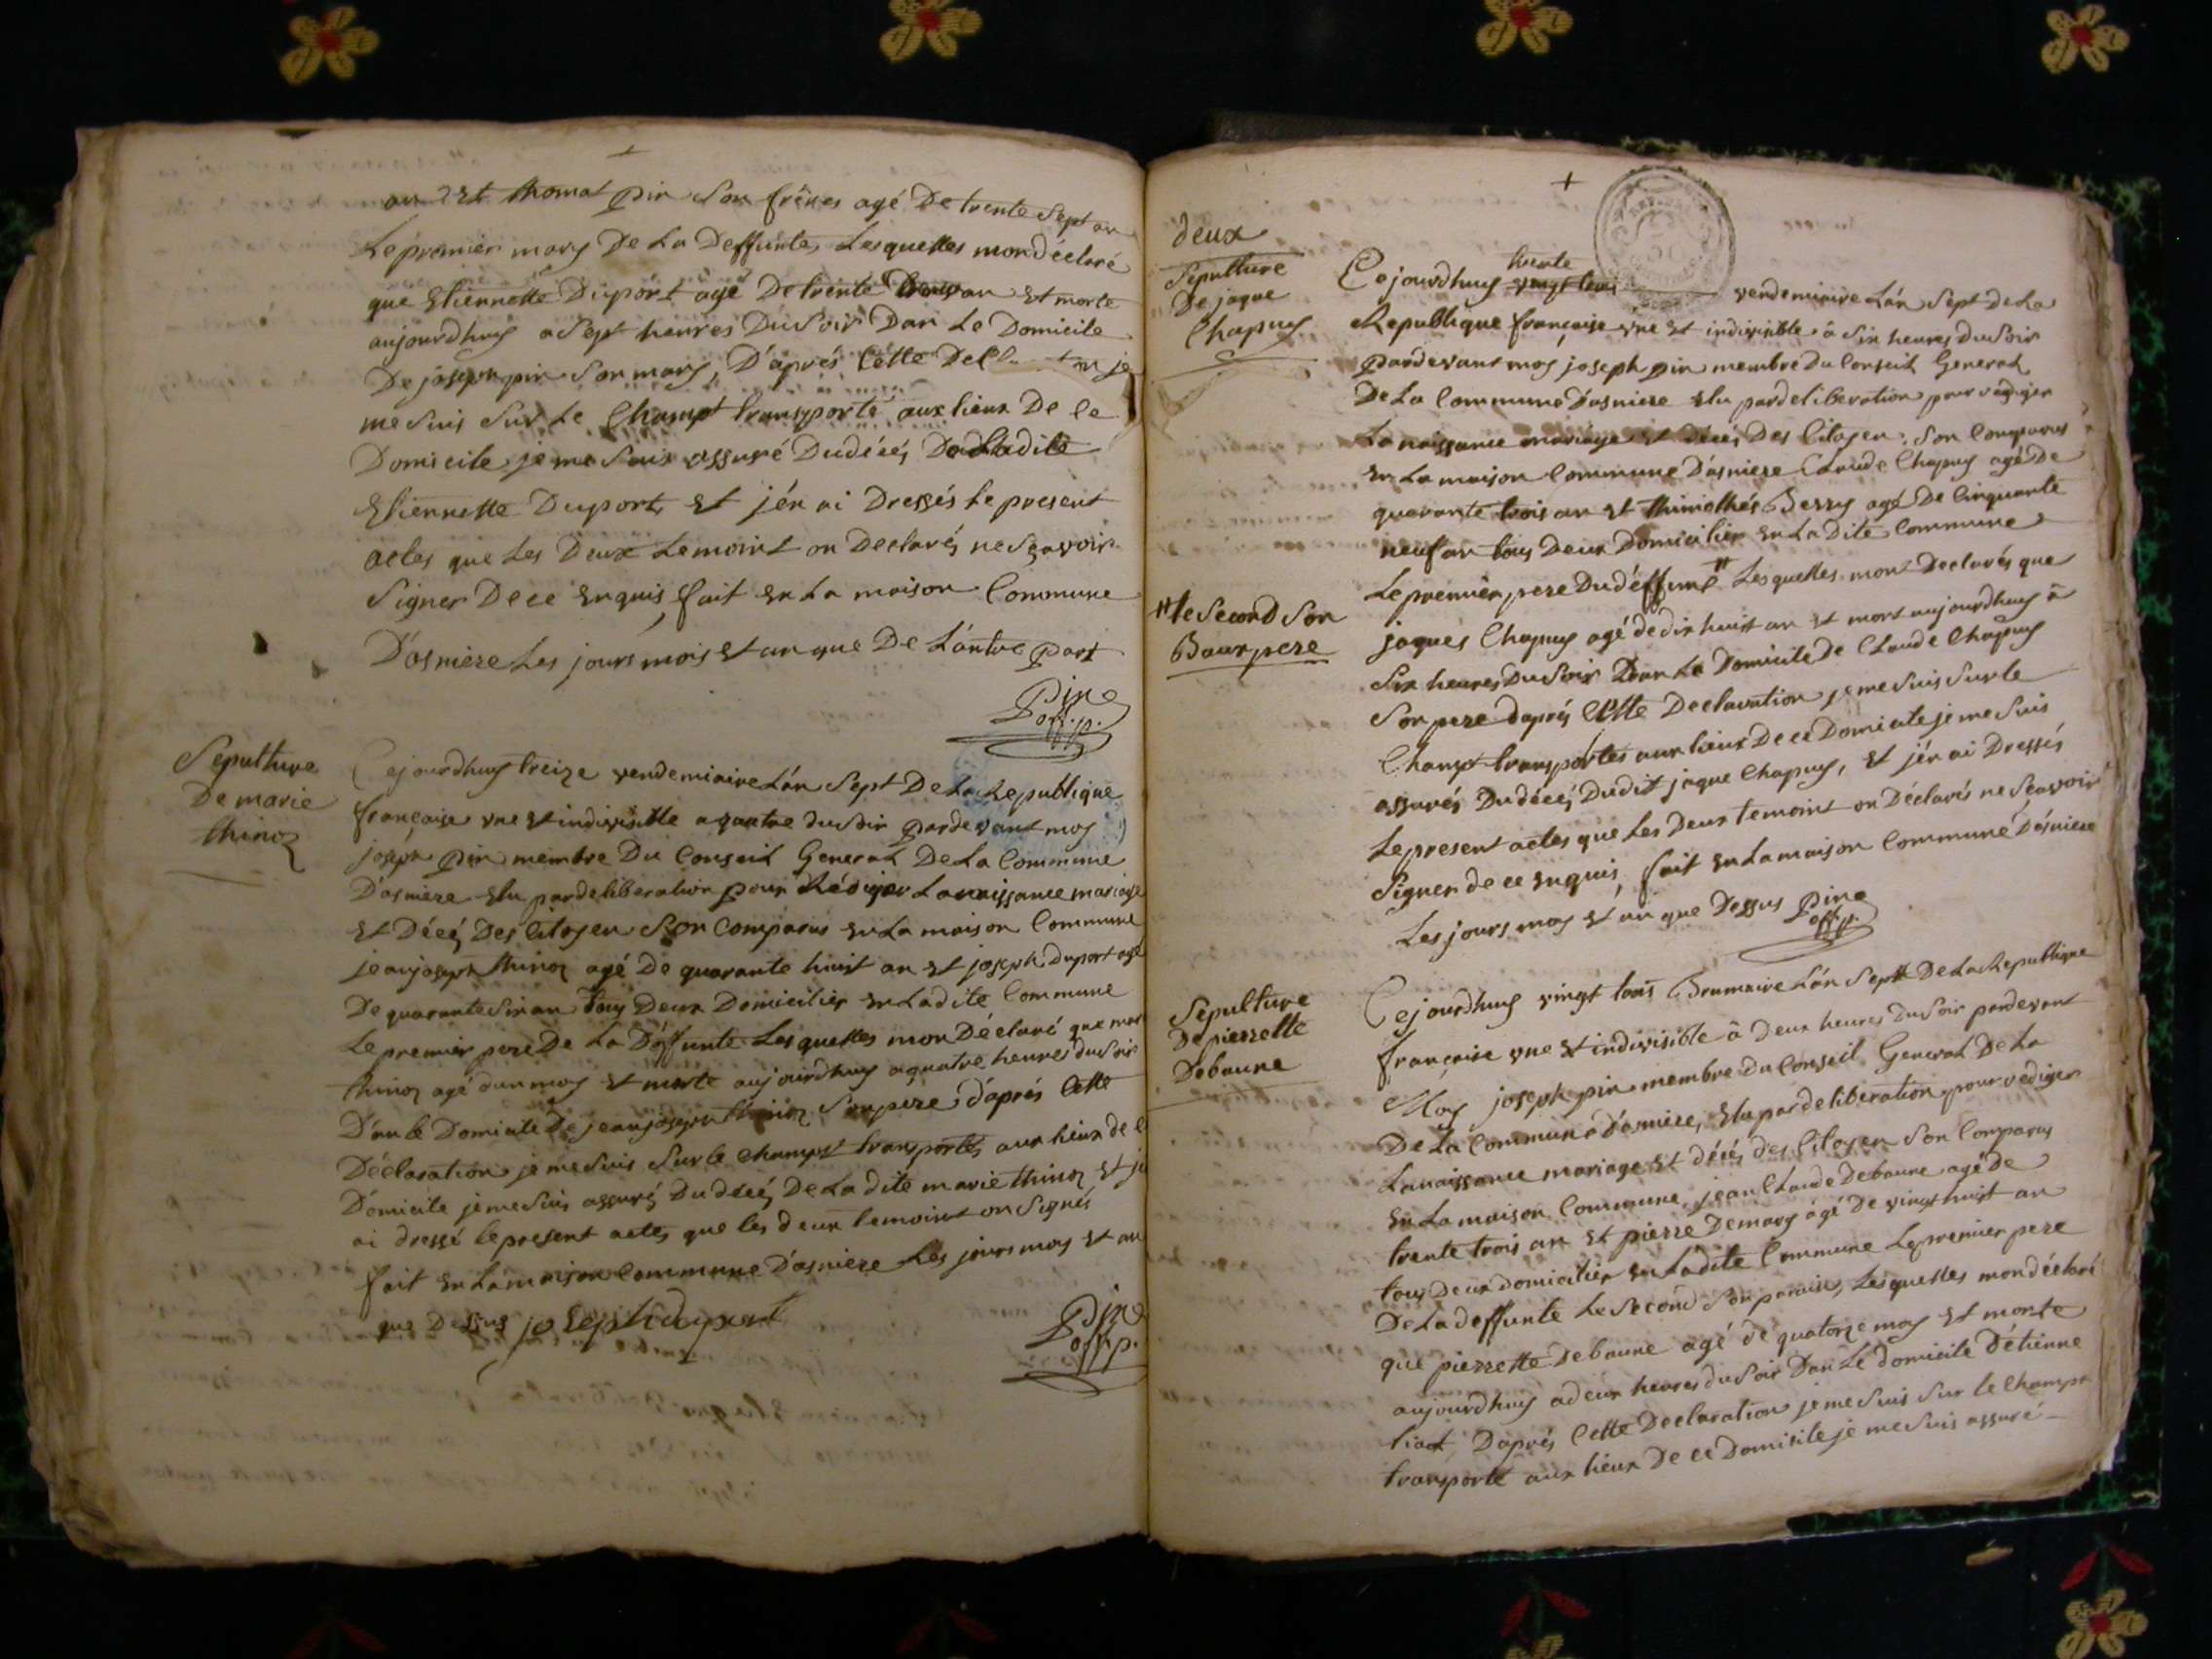 an Et thomat pin Son frêres agé De trente Sept an
Le premier mary De La Deffunte, Lesquelles mon déclaré
que Etiennette Duport agé De trente an Et morte
aujourdhuy a Sept heures Du Soir Dan Le Domicile
De joseph pin Son mary, D'aprés Cette je
me Suis Sur Le Champt transporté aux lieux De Ce
Domicile je me Suis assuré Du décés De Ladite
Etiennette Duport, Et j'én ai Dressés Le present
actes que Les Deux temoint on Declarés ne Sçavoir
Signer De ce Enquis, fait En La maison Commune
D'asniere Les jours mois Et an que De L'autre part
Pin
off. p.
Sepulture
De marie
thinoz
Cejourdhuy treize vendemiaire L'án Sept De La Republique
française une Et indivisible a quatre du Soir pardevant moy
joseph pin membre Du Conseil General De La Commune
D'asniere Elu par deliberation pour Rédiger La naissance mariage
Et Décés Des Citoyen Son Comparus En La maison Commune
jean joseph thinoz agé De quarante huit an Et joseph Duport agé
De quarante Six an Touy Deux Domicilier En Ladite Commune
Le premier pere De La Déffunte Lesquelles mon Déclaré que
thinoz agé dun moy Et morte aujourdhuy a quatre heures du Soir
D'an le Domicile De jean joseph thinoz Son pere d'aprés Cette
Déclaration je me Suis Sur le Champt transportés aux lieux de
Domicile je me Suis assurés Du décés De La dite marie thinoz Et
ai dressé le present actes que les deux temoint on Signés
fait En La maison Commune D'asniere Les jours moy Et an
que Dessus joseph duport
Pin
off. p.
deux
Sepulture
De jaque
Chapuy
Cejourdhuy trente vendemiaire L'án Sept De La
Republique française une Et indivisible â Six heures Du Soir
pardevant moy joseph pin membre Du Conseil General
De La Commune D'asniere Elu par deliberation pour rédiger
La naissance mariage Et décés Des Citoyen, Son Comparus
En La maison Commune D'asniere Claude Chapuy agé De
quarante trois an Et thimothés Berry agé De Cinquante
neuf an touy Deux Domicilier En La Dite Commune
Le premier pere Du déffunt # Lesquelles mon Declarés que
# le Second Son
Baux pere
jaques Chapuy agé de dix huit an Et mort aujourdhuy â
Six heures Du Soir Dan Le Domicile De Claude Chapuy
Son pere d'aprés Cette Declaration je me Suis Sur le
Champt transportés aux lieux De ce Domicile je me Suis
assurés Du décés Dudit jaque Chapuy, Et j'én ai Dressés
Le present actes que Les Deux temoint on Déclarés ne Sçavoir
Signer de ce Enquis, fait En La maison Commune D'asniere
Les jours moy Et an que Dessus Pin
off. p.
Sepulture
De pierrette
Debaune
Cejourdhuy vingt trois Brumaire L'án Sept De La Republique
française une Et indivisible â Deux heures Du Soir pardevant
Moy joseph pin membre du Conseil General De La
De La Commune D'asniere, Elu par deliberation pour rediger
La naissance mariage Et décés des Citoyen Son Comparus
En La maison Commune, jean Claude Debaune agé De
trente trois an Et pierre Demary agé De vingt huit an
touy Deux domicilier En Ladite Commune Le premier pere
De La deffunte Le Second Son parain, Lesquelles mon déclaré
que pierrette Debaune agé de quatorze moy Et morte
aujourdhuy a deux heures du Soir Dan Le domicile D'étienne
Daprés Cette Declaration je me Suis Sur le Champt
transporté aux lieux De ce Domicile je me Suis assuré